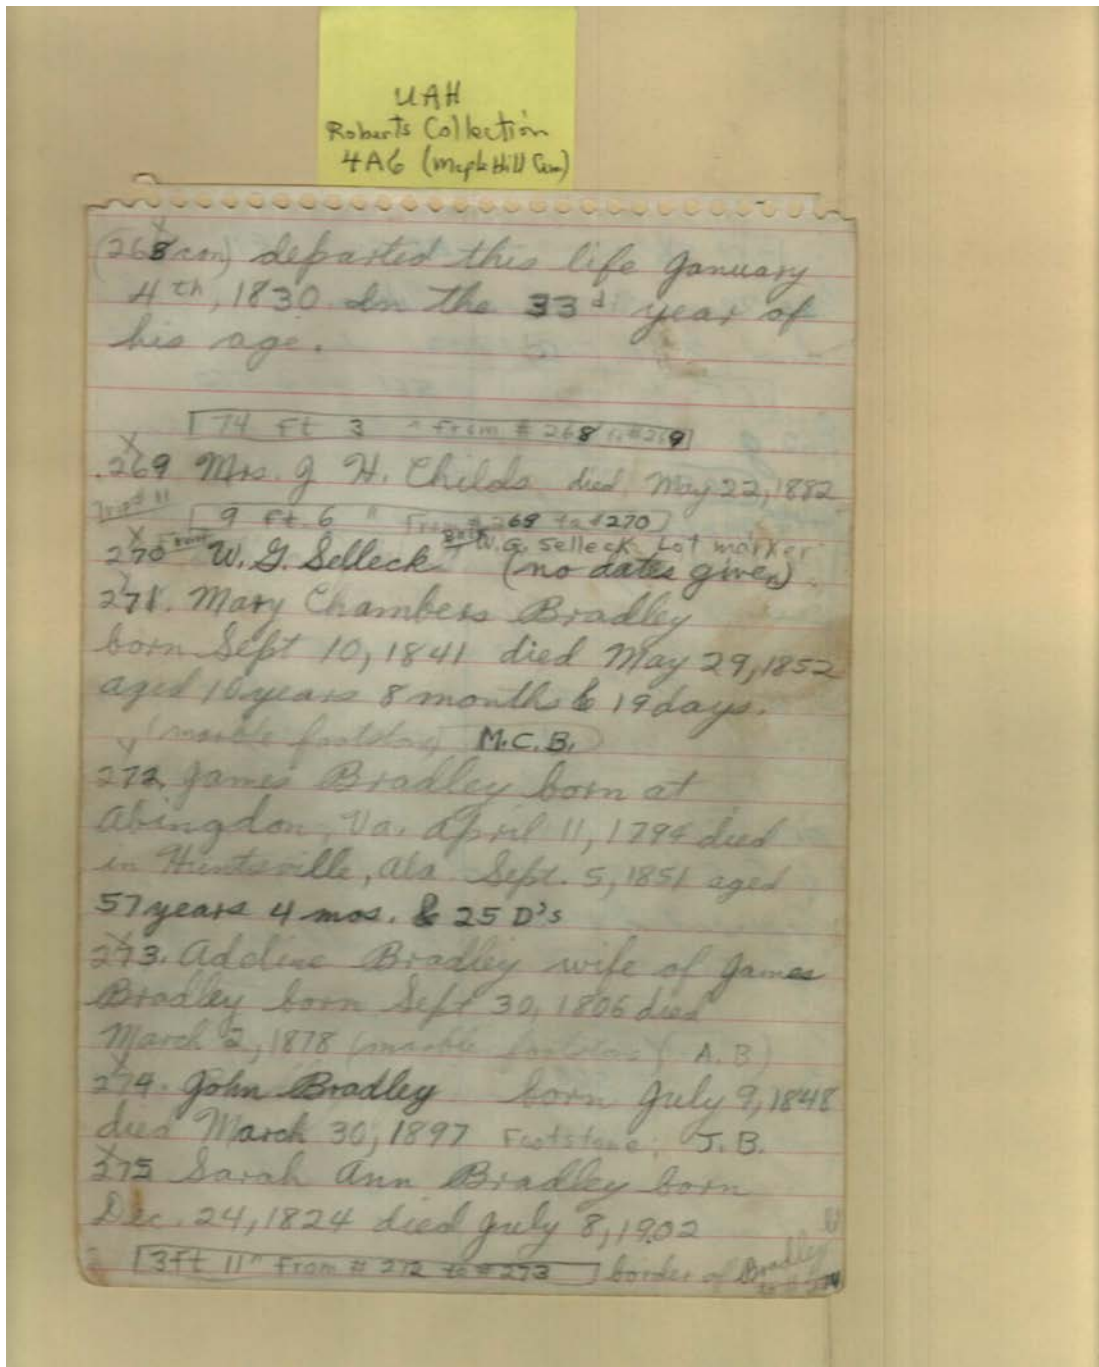 UAH
Roberts Collection
4A6 (Maple Hill Cem)
(268 con) departed this life January
4th, 1830 In the 33d year of
his age.
74 ft 3 " From # 268 to #269
269 Mrs. J H. Childs died May 22, 1882
Trip # 11
9 Ft. 6 " From # 269 to #270
270 Front W. G. Selleck Back W.G. Selleck Lot marker
(no dates given)
271. Mary Chambers Bradley
born Sept 10, 1841 died May 29, 1852
aged 10 years 8 months & 19 days.
(marble footstone) M.C.B.
272. James Bradley born at
Abingdon, Va. April 11, 1794 died
in Huntsville, Ala Sept. 5, 1851 aged
57 years 4 mos. & 25 D's
273. Adeline Bradley wife of James
Bradley born Sept 30, 1806 died
March 2, 1878 (marble footstone A.B)
274. John Bradley born July 9, 1848
died March 30, 1897 Footstone: J.B.
275 Sarah Ann Bradley born
Dec. 24, 1824 died July 8, 1902
3ft 11" From # 272 to # 273 border of Bradley